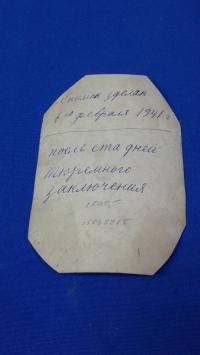 Снимок зделан
6го февраля 1941 г
после ста дней
тюремного
заключения